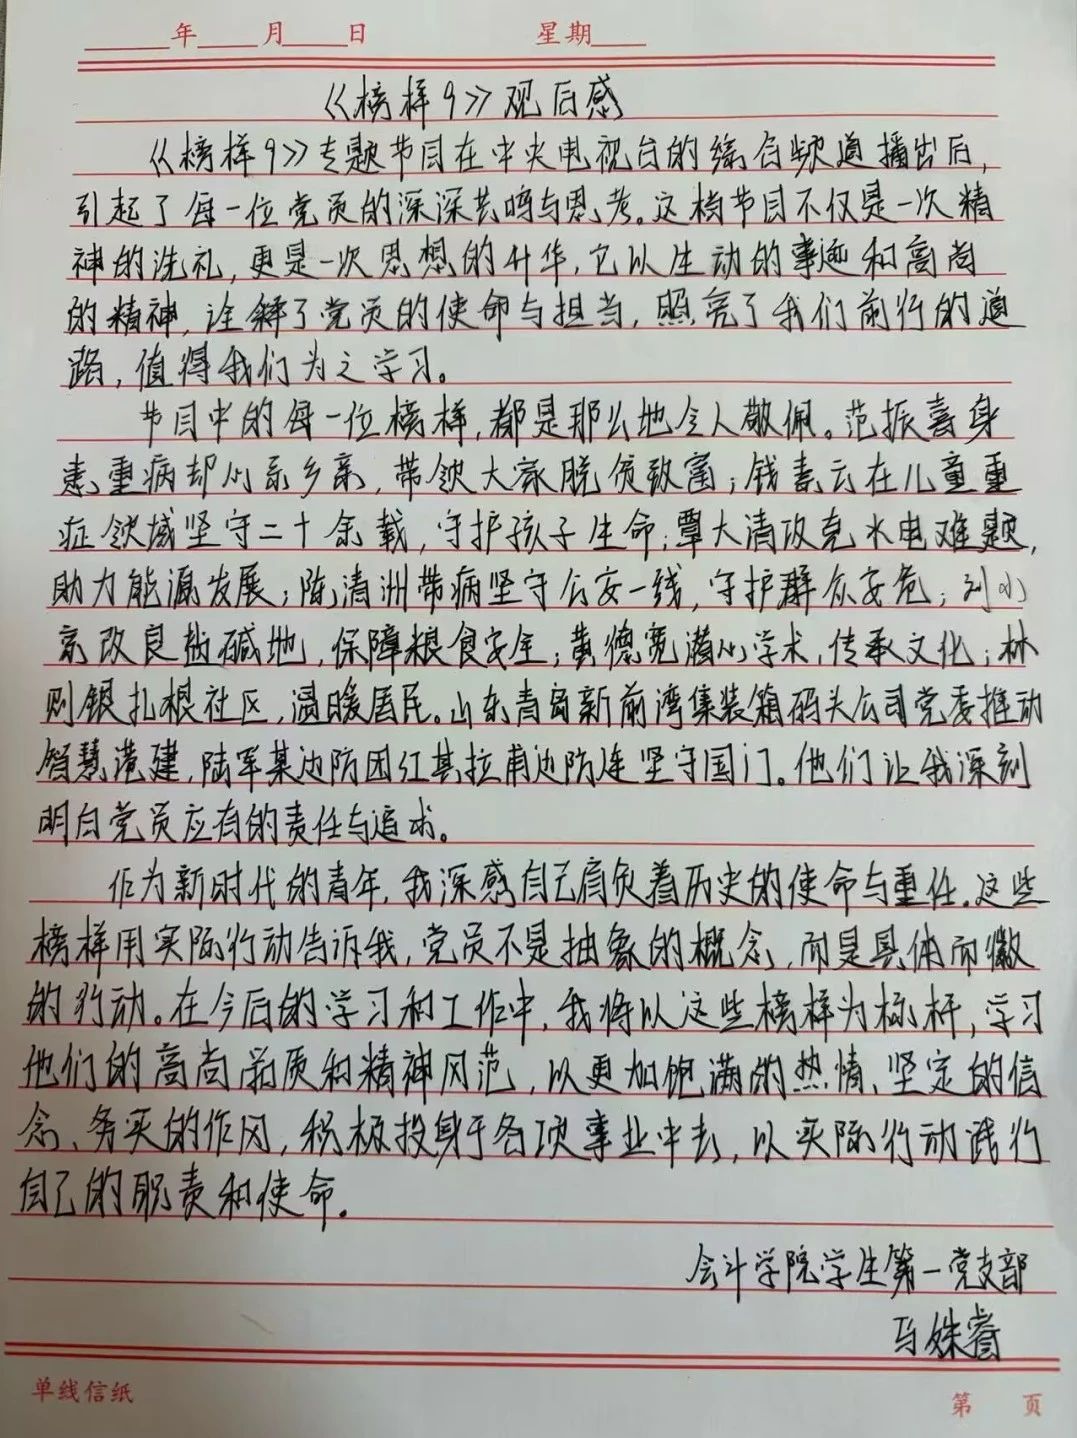 年 月 日 星期
《榜样9》观后感
《榜样9》专题节目在中央电视台的综合频道播出后,
引起了每一位党员的深深共鸣与思考。这档节目不仅是一次精
神的洗礼,更是一次思想的升华,它以生动的事迹和高尚
的精神,诠解了党员的使命与担当,照亮了我们前行的道
路,值得我们为之学习。
节目中的每一位榜样,都是那么地令人敬佩。范振喜身
患重病却心系乡亲,带领大家脱贫致富;钱素云在儿童重
症领域坚守二十余载,守护孩子生命;覃大清攻克水电难题,
助力能源发展;陈清洲带病坚守公安一线,守护群众安危;刘小
京改良盐碱地,保障粮食安全;黄德宽潜心学术,传承文化;林
则银扎根社区,温暖居民。山东青岛新前湾集装箱码头公司党委推动
智慧港建,陆军某边防团红其拉甫边防连坚守国门。他们让我深刻
明白党员应有的责任与追求。
作为新时代的青年,我深感自己肩负着历史的使命与重任。这些
榜样用实际行动告诉我,党员不是抽象的概念,而是具体而微
的行动。在今后的学习和工作中,我将以这些榜样为标杆,学习
他们的高尚品质和精神风范,以更加饱满的热情、坚定的信
念、务实的作风,积极投身于各项事业中去,以实际行动践行
自己的职责和使命。
会计学院学生第一党支部
马姝睿
单线信纸 第 页